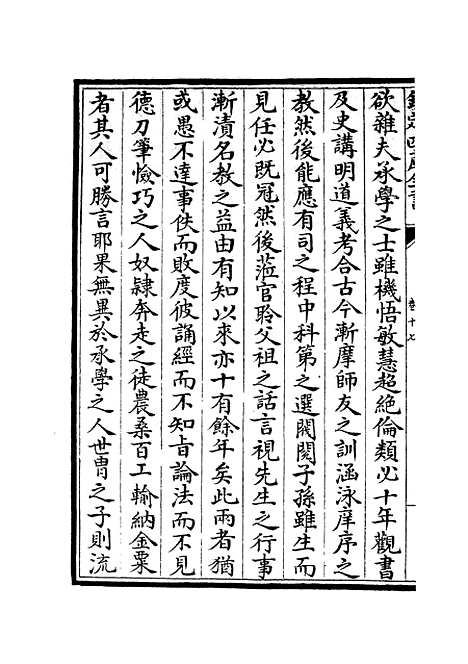 欽定四庫全書
卷十七
欲雜夫承學之士雖機悟敏慧超絶倫類必十年觀書
及史講明道義考合古今漸摩師友之訓涵泳庠序之
教然後能應有司之程中科第之選閥閱子孫雖生而
見任必既冠然後蒞官聆父祖之話言視先生之行事
漸漬名教之益由有知以來亦十有餘年矣此兩者猶
或愚不達事佚而敗度彼誦經而不知旨論法而不見
德刀筆憸巧之人奴隷奔走之徒農桑百工輸納金粟
者其人可勝言耶果無異於承學之人世胄之子則流